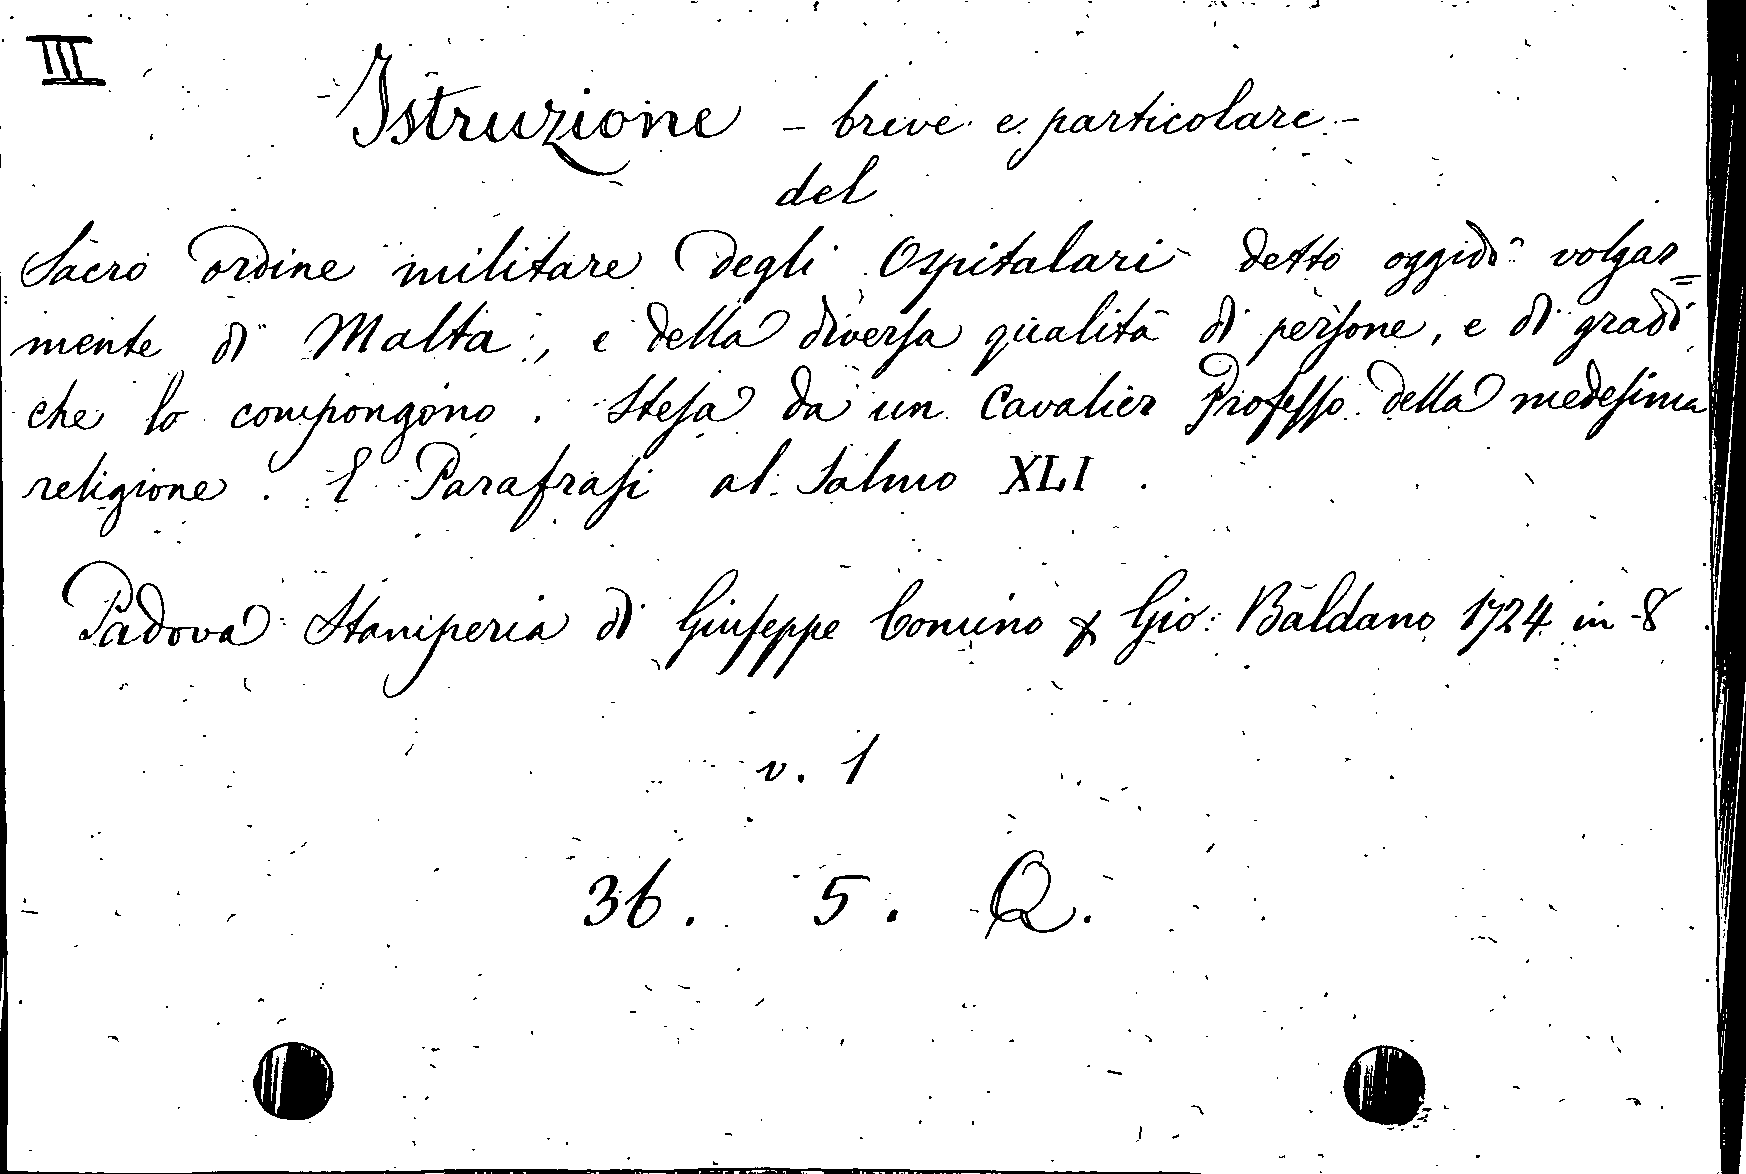 III
Istruzione - breve e particolare -
del
Sacro ordine militare degli Ospitalari detto oggidì volgar=
mente di Malta, e della diversa qualità di persone, e di gradi
che lo compongono. Stesa da un Cavalier Professo della medesima
religione. E Parafrasi al Salmo XLI.
Padova Stamperia di Giuseppe Comino & Gio: Baldano 1724 in-8
v. 1
36. 5. Q.